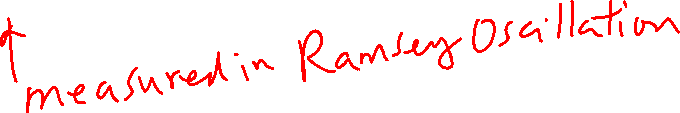 ↑
measured in Ramsey Oscillation